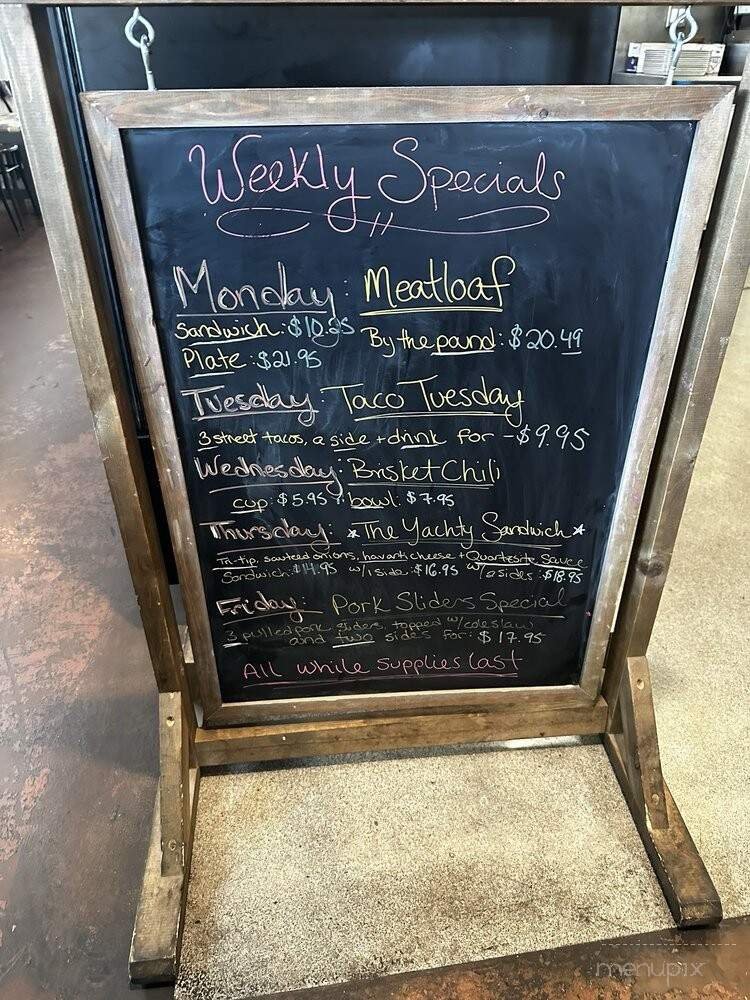 Weekly Specials
Monday: Meatloaf
Sandwich: $10.95 By the pound: $20.49
Plate: $21.95
Tuesday: Taco Tuesday
3 street tacos, a side + drink for - $9.95
Wednesday: Brisket Chili
cup: $5.95 bowl: $7.95
Thursday: *The Yachty Sandwich*
Tri-tip, sauteed onions, havarti cheese + Quartzsite Sauce
Sandwich: $14.95 w/1 side: $16.95 w/2 sides: $18.95
Friday: Pork Sliders Special
3 pulled pork sliders topped w/coleslaw
and two sides for: $17.95
All while supplies last
menupix